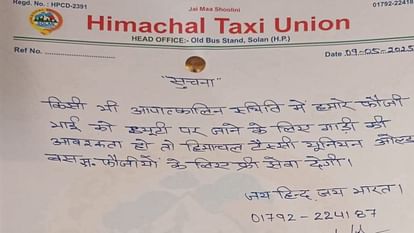 Regd. No. : HPCD-2391
Jai Maa Shoolini
01792-22418
Himachal Taxi Union
HEAD OFFICE:- Old Bus Stand, Solan (H.P.)
Ref No.
Date 09-05-2025
"सुचना"
किसी भी आपातकालिन स्थिति में हमारे फौजी
भाई को ड्युटी पर जाने के लिए गाड़ी की
आवश्कता हो तो हिमाचल टैक्सी यूनियन ओल्ड
बस फौजीयों के लिए फ्री सेवा देगी।
जय हिन्द जय भारत।
01792-224187